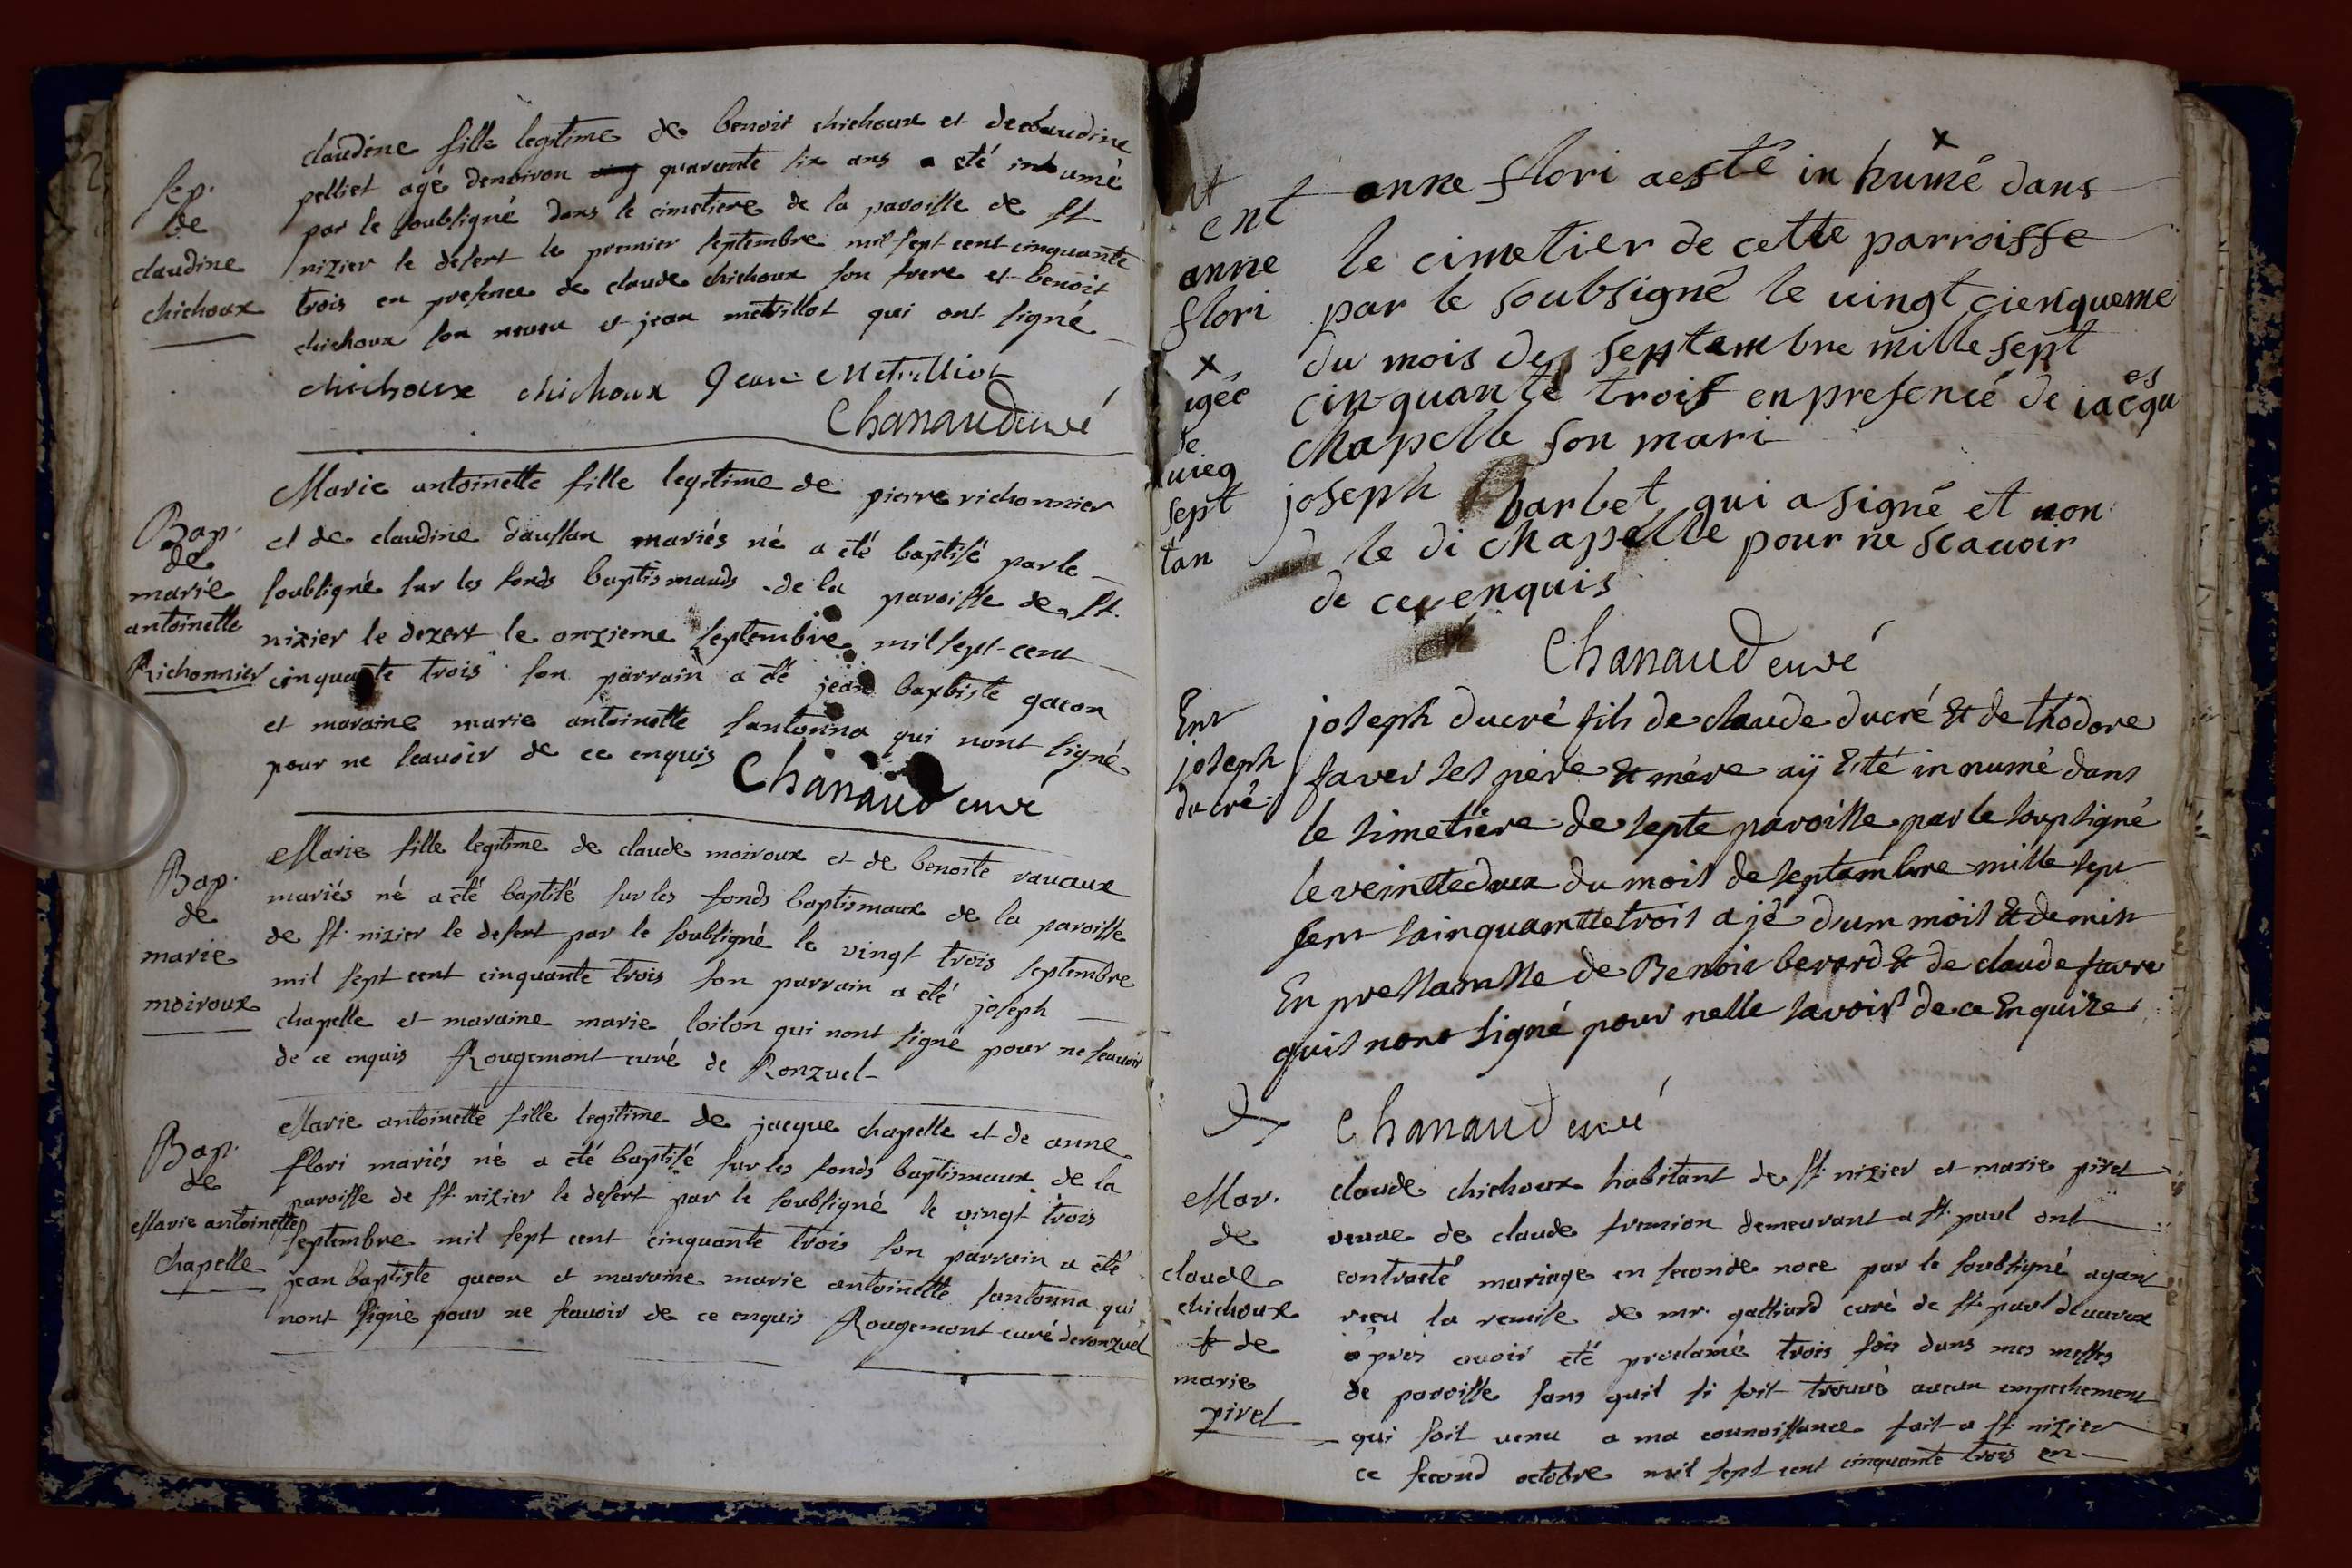 Sep.
de
claudine
chichoux
claudine fille legitime de benoit chichoux et de claudine
pelliet agé denviron quarente six ans a eté inhumé
par le soubsigné dans le cimetiere de la paroisse de st
nizier le desert le premier septembre mil sept cent cinquante
trois en presence de claude chichoux son frere et benoit
chichoux son neveu et jean metrillot qui ont signé
chichoux chichoux Jean Metrilliot
Chanaud curé
Bap.
de
marie
antoinette
Richonnier
Marie antoinette fille legitime de pierre richonnier
et de claudine daussan mariés né a été baptisé par le
soubsigné sur les fonds baptismauds de la paroisse de st.
nizier le dezert le onzieme septembre mil sept cent
cinquante trois son parrain a été jean baptiste gacon
et maraine marie antoinette santonna qui nont signé
pour ne scauoir de ce enquis
Chanaud curé
Bap.
de
marie
moiroux
Marie fille legitime de claude moiroux et de benoite rauaux
mariés né a été baptisé sur les fonds baptismaux de la paroisse
de st. nizier le desert par le soubsigné le vingt trois septembre
mil sept cent cinquante trois son parrain a eté joseph
chapelle et maraine marie loilon qui nont signé pour ne scauoir
de ce enquis Rougemont curé de Ronzuel
Bap.
de
Marie antoinette
Chapelle
Marie antoinette fille legitime de jacque chapelle et de anne
flori mariés né a eté baptisé sur les fonds baptismaux de la
paroisse de st nizier le desert par le soubsigné le vingt trois
septembre mil sept cent cinquante trois son parrain a eté
jean baptiste gacon et maraine marie antoinette santonna qui
nont signé pour ne scauoir de ce enquis Rougemont curé de ronzuel
ent
anne
flori
x
agée
de
sept
tan
x
anne flori aesté in humé dans
le cimetier de cette parroisse
par le soubsigné le uingt cienqueme
du mois de septembre mille sept
cinquante trois en presencé de iacques
Chapelle son mari
joseph barbet qui a signé et non
le di chapelle pour ne scauoir
de ce enquis
Chanaud curé
Ent
joseph
ducré
joseph ducré fils de claude ducré Et de thodore
faver ses pere Et mère aÿ Eté innumé dans
le simetiere de septe paroisse par le soupsigné
le veinttedeux du mois de septambre mille sept
sent sainquamttetrois a jé dum mois Et demis
En pressamsse de Benoit berard Et de claude favre
quis nont signé pour nesse savoir de ce Enquize
Chanaud curé
Mar.
de
claude
chichoux
et de
marie
pivet
claude chichoux habitant de st. nizier et marie pivet
veuve de claude fremion demeurant a st. paul ont
contracté mariage en seconde noce par le soubsigné ayant
receu la remise de mr. galliard curé de st. paul deuarax
apres auoir eté proclamé trois fois dans mes messes
de paroisse sans quil si soit trouvé aucun empechement
qui soit venu a ma connoissance fait a st. nizier
ce second octobre mil sept cent cinquante trois en